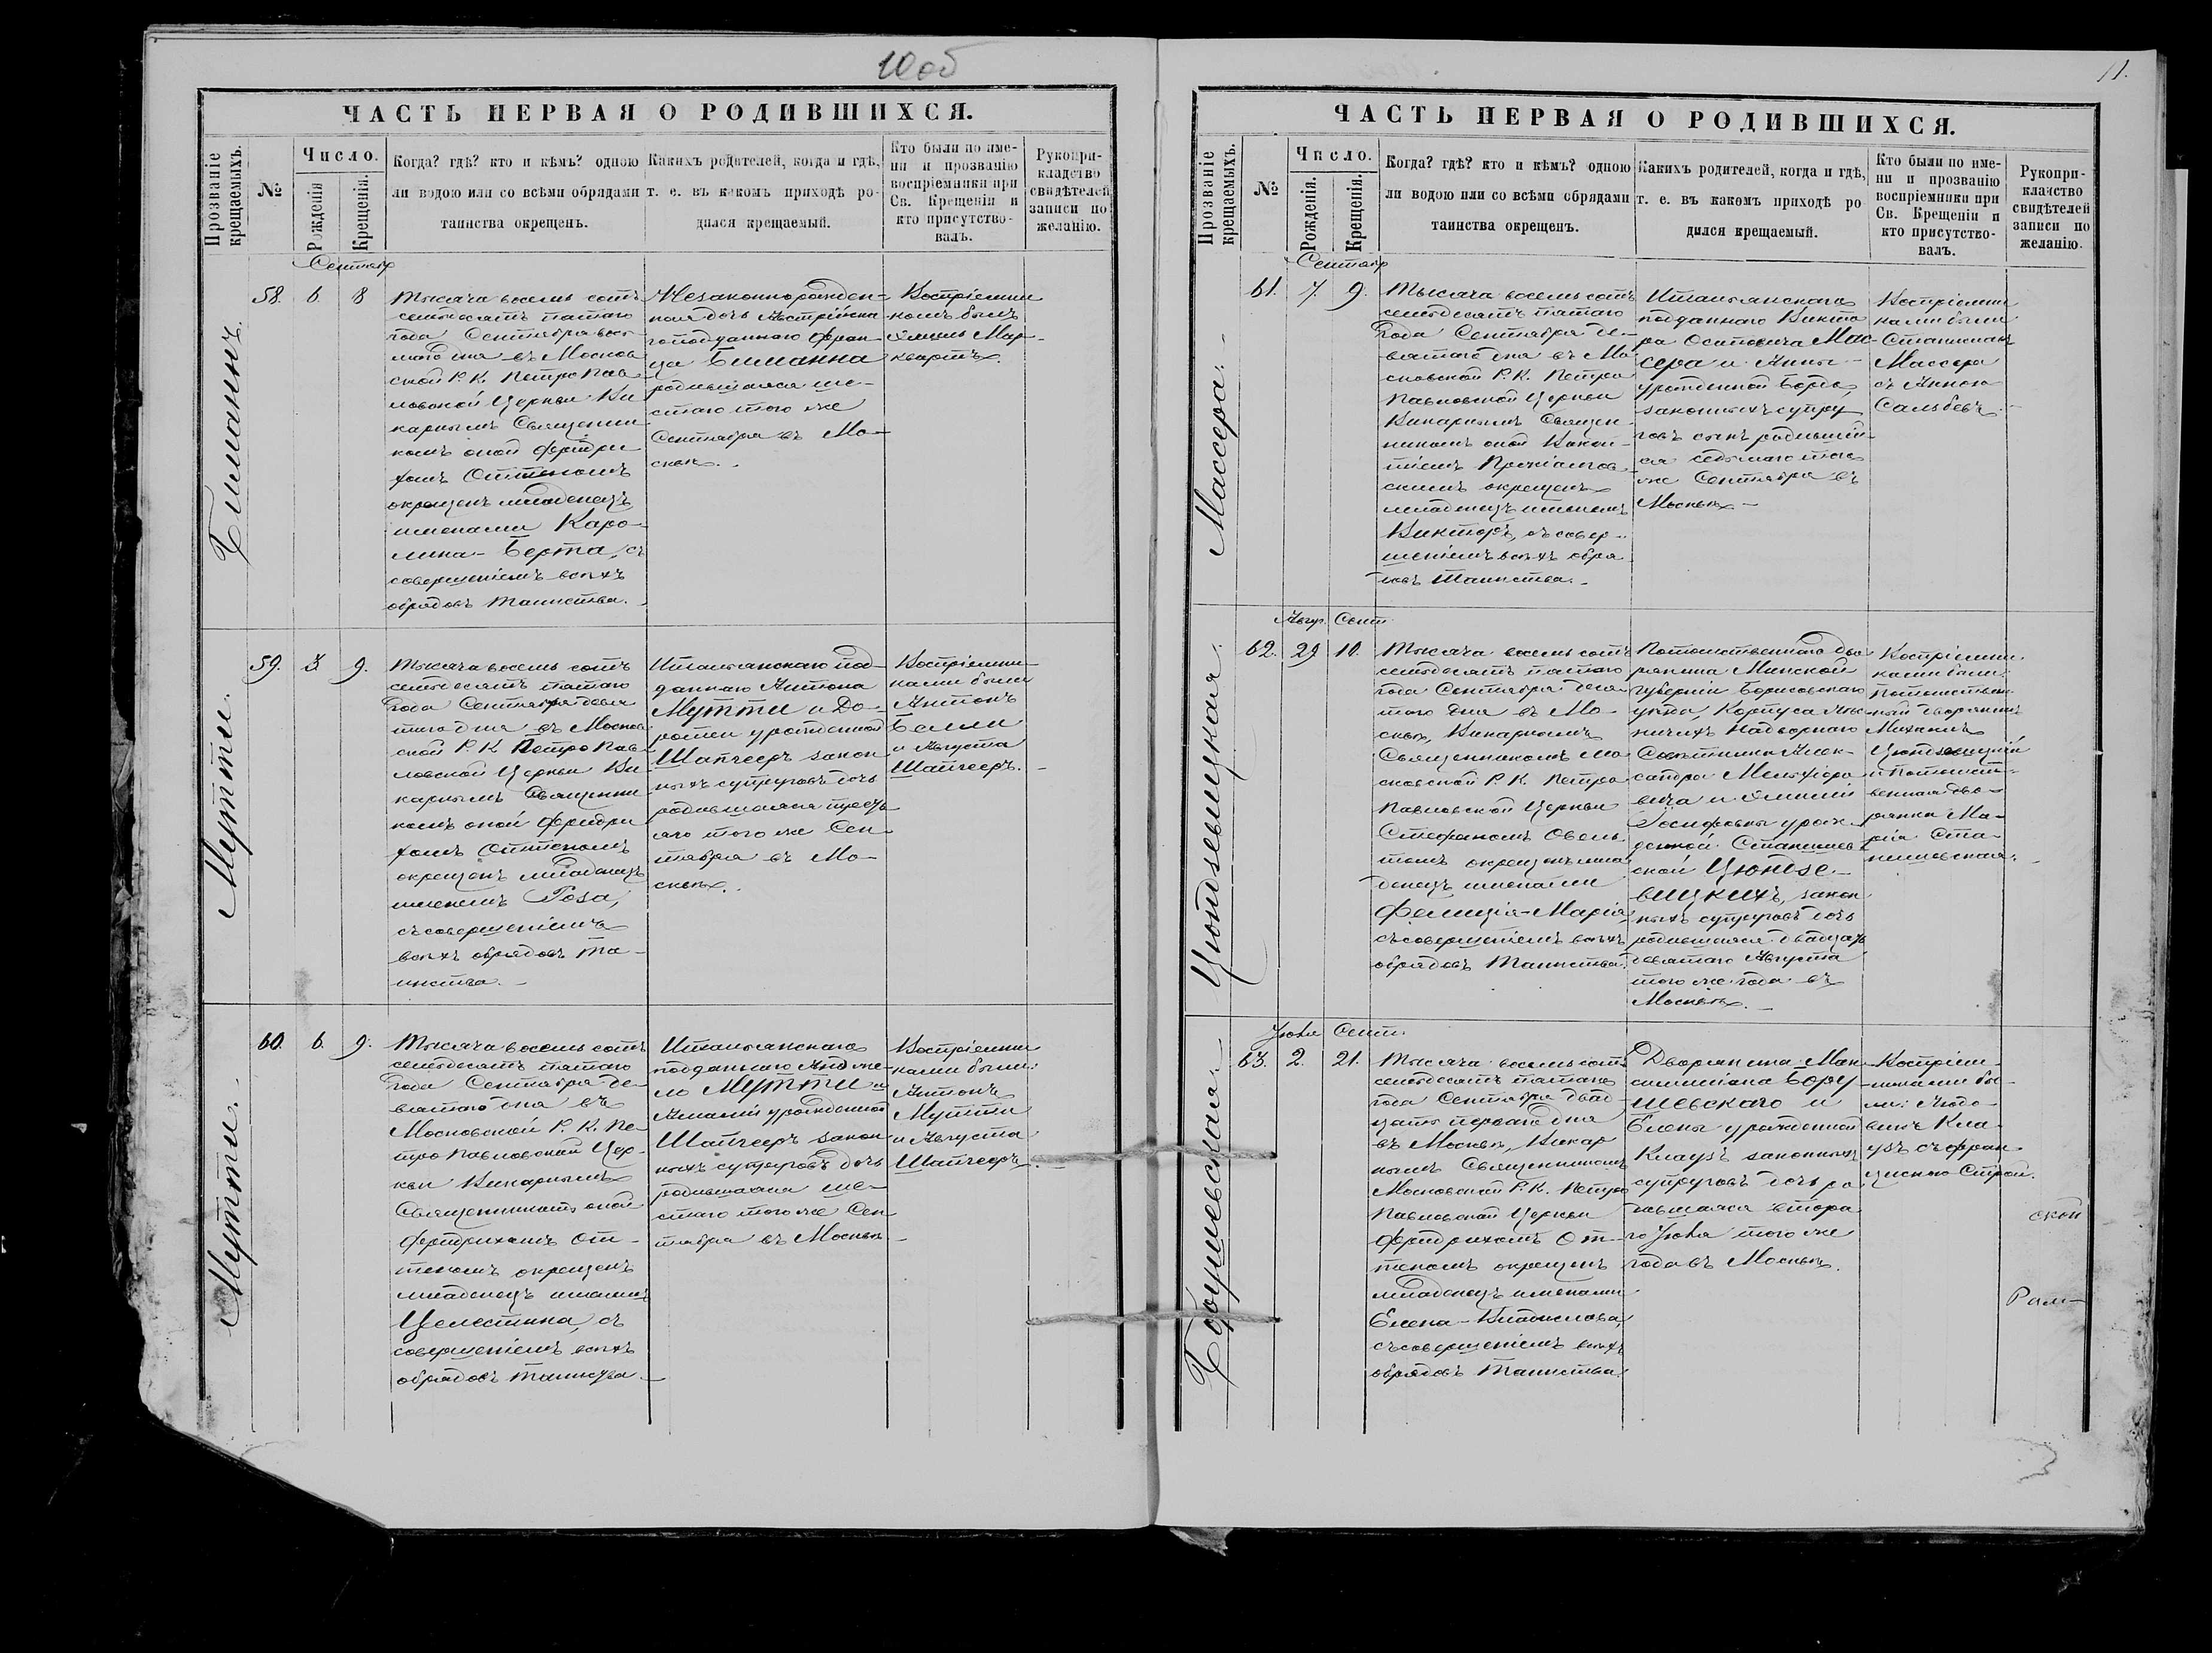 10 об
ЧАСТЬ ПЕРВАЯ О РОДИВШИХСЯ.
Прозваніе крещаемыхъ.
№
Число.
Рожденія
Крещенія.
Когда? гдѣ? кто и кѣмъ? одною
ли водою или со всѣми обрядами
таинства окрещенъ.
Какихъ родителей, когда и гдѣ,
т. е. въ какомъ приходѣ ро-
дился крещаемый.
Кто были по име-
ни и прозванію
воспріемники при
Св. Крещеніи и
кто присутство-
валъ.
Рукопри-
кладство
свидѣтелей
записи по
желанію.
Сентябр
58. 6. 8
Тысяча восемь сотъ
семьдесятъ пятаго
года Сентября вось-
маго дня въ Москов
ской Р. К. Петро Пав
ловской Церкви Ви
карнымъ Священни
комъ оной Фридри
хомъ Оттеномъ
окрещенъ младенецъ
именами Каро-
лина-Берта, съ
совершеніемъ всѣхъ
обрядовъ таинства.
Незаконнорожден-
ная дочь Австрійска
го подданнаго Фран-
ца
родившаяся ше-
стаго того же
Сентября въ Мо-
сквѣ.
Воспріемни
комъ былъ
Эмиль Мар-
квартъ.
Мутти.
59. 3 9.
Тысяча восемь сотъ
семьдесятъ пятаго
года Сентября девя
таго дня въ Москов
ской Р. К. Петро Пав-
ловской Церкви Ви
карнымъ Священни
комъ оной Фридри
хомъ Оттеномъ
окрещенъ младенецъ
именемъ Роза,
съ совершеніемъ
всѣхъ обрядовъ та-
инства.
Итальянскаго под-
даннаго Антона
Мутти и До-
ротеи урожденной
Шапчееръ закон
ныхъ супруговъ дочь
родившаяся треть
яго того же Сен
тября въ Мо-
сквѣ.
Воспріемни-
ками были
Антонъ
Белли
и Августа
Шапчееръ.
Мутти.
60. 6. 9.
Тысяча восемь сотъ
семьдесятъ пятаго
года Сентября де-
вятаго дня въ
Московской Р. К. Пе-
тро Павловской Цер-
кви Викарнымъ
Священникомъ оной
Фридрихомъ От-
теномъ окрещенъ
младенецъ именемъ
Целестина, съ
совершеніемъ всѣхъ
обрядовъ таинства.
Итальянскаго
подданнаго Анджe-
ло Мутти и
Амаліи урожденной
Шапчееръ закон
ныхъ супруговъ дочь
родившаяся ше-
стаго того же Сен
тября въ Москвѣ.
Воспріемни
ками были:
Антонъ
Мутти
и Августа
Шапчееръ.
11.
ЧАСТЬ ПЕРВАЯ О РОДИВШИХСЯ.
Прозваніе крещаемыхъ.
№
Число.
Рожденія.
Крещенія.
Когда? гдѣ? кто и кѣмъ? одною
ли водою или со всѣми обрядами
таинства окрещенъ.
Какихъ родителей, когда и гдѣ,
т. е. въ какомъ приходѣ ро
дился крещаемый.
Кто были по име-
ни и прозванію
воспріемники при
Св. Крещеніи и
кто присутство-
валъ.
Рукопри-
кладство
свидѣтелей
записи по
желанію.
Массера.
Сентябр
61. 7. 9.
Тысяча восемь сотъ
семьдесятъ пятаго
года Сентября де-
вятаго дня въ Мо
сковской Р. К. Петро
Павловской Церкви
Викарнымъ Священ-
никомъ оной
окрещенъ
младенецъ именемъ
Викторъ, съ совер-
шеніемъ всѣхъ обря
довъ таинства.
Итальянскаго
подданнаго Викто
ра Осиповича Мас-
сера и Анны
урожденной
законныхъ супру
говъ сынъ родившій-
ся седьмаго того
же Сентября въ
Москвѣ.
Воспріемни
ками были
Станиславъ
Массера
съ Анною
Авгус. Сент.
62. 29 10.
Тысяча восемь сотъ
семьдесятъ пятаго
года Сентября деся
таго дня въ Мо-
сквѣ, Викарнымъ
Священникомъ Мо
сковской Р. К. Петро
Павловской Церкви
Стефаномъ
окрещенъ мла
денецъ именами
Фелиція-Марія,
съ совершеніемъ всѣхъ
обрядовъ таинства.
Потомственнаго дво
рянина Минской
губерніи Борисовскаго
уѣзда, Корпуса Лѣс
ничихъ Надворнаго
Совѣтника Алек-
сандра Мельхіоро
вича и Эмиліи
Іосифовны урож-
денной Станишев
ской Цюндзе-
вицкихъ, закон
ныхъ супруговъ дочь
родившаяся двадцать
девятаго Августа
того же года въ
Москвѣ.
Воспріемни
ками были:
потомствен
ный дворянинъ
Михаилъ
Цюндзевицкій
и потомст-
венная дво-
рянка Ма-
рія Ста-
нишевская.
Цюндзевицкая.
Іюля Сент.
63. 2. 21.
Тысяча восемь сотъ
семьдесятъ пятаго
года Сентября двад
цать перваго дня
въ Москвѣ, Викар
нымъ Священникомъ
Московской Р. К. Петро
Павловской Церкви
Фридрихомъ От-
теномъ окрещенъ
младенецъ именами
Елена-Владислава,
съ совершеніемъ всѣхъ
обрядовъ таинства.
Дворянина Мак-
симиліана Бору
шевскаго и
Елены урожденной
Клаузъ законныхъ
супруговъ дочь ро
дившаяся втора
го Іюля того же
года въ Москвѣ.
Воспріем-
никами бы-
ли: Людо-
викъ Кла-
узъ съ Фран
Борушевская.
ской